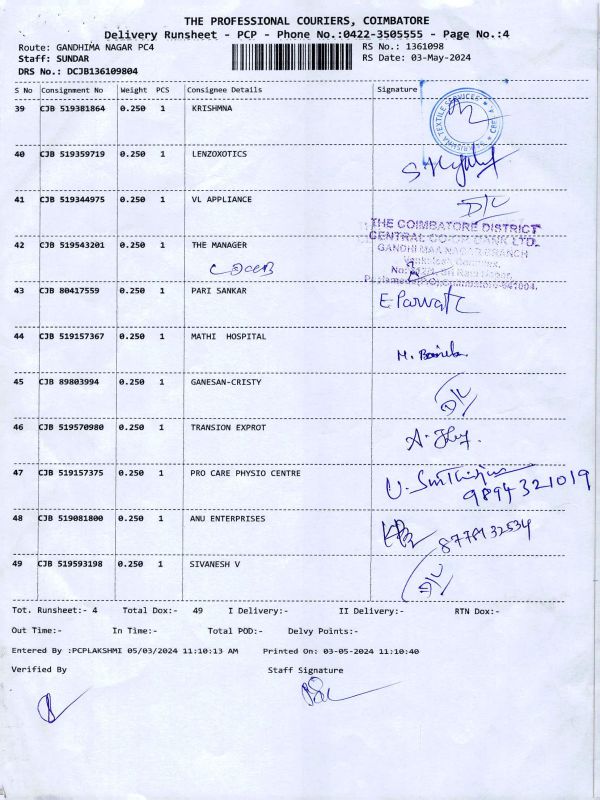 THE PROFESSIONAL COURIERS, COIMBATORE
Delivery Runsheet - PCP - Phone No.:0422-3505555 - Page No.:4
Route: GANDHIMA NAGAR PC4 RS No.: 1361098
Staff: SUNDAR RS Date: 03-May-2024
DRS No.: DCJB136109804
S No Consignment No Weight PCS Consignee Details Signature
39 CJB 519381864 0.250 1 KRISHMNA
TEXTILE SERVICES
40 CJB 519359719 0.250 1 LENZOXOTICS
41 CJB 519344975 0.250 1 VL APPLIANCE D/L
THE COIMBATORE DISTRICT
CENTRAL CO-OP. BANK LTD.
42 CJB 519543201 0.250 1 THE MANAGER
GANDHI MAA NAGAR BRANCH
43 CJB 80417559 0.250 1 PARI SANKAR E Parvat
44 CJB 519157367 0.250 1 MATHI HOSPITAL
M.
45 CJB 89803994 0.250 1 GANESAN-CRISTY D/L
46 CJB 519570980 0.250 1 TRANSION EXPROT A.
47 CJB 519157375 0.250 1 PRO CARE PHYSIO CENTRE U.
9894321019
48 CJB 519081800 0.250 1 ANU ENTERPRISES 8778132534
49 CJB 519593198 0.250 1 SIVANESH V D/L
Tot. Runsheet:- 4 Total Dox:- 49 I Delivery:- II Delivery:- RTN Dox:-
Out Time:- In Time:- Total POD:- Delvy Points:-
Entered By :PCPLAKSHMI 05/03/2024 11:10:13 AM Printed On: 03-05-2024 11:10:40
Verified By Staff Signature